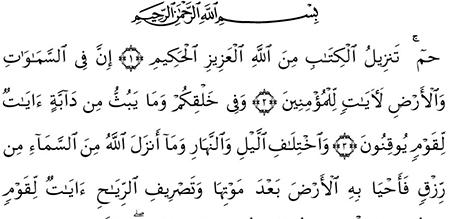 بِسْمِ ٱللَّهِ ٱلرَّحْمَٰنِ ٱلرَّحِيمِ
حمٓ ۚ تَنزِيلُ ٱلْكِتَٰبِ مِنَ ٱللَّهِ ٱلْعَزِيزِ ٱلْحَكِيمِ ﴿١﴾ إِنَّ فِى ٱلسَّمَٰوَٰتِ
وَٱلْأَرْضِ لَـَٔايَٰتٍ لِّلْمُؤْمِنِينَ ﴿٢﴾ وَفِى خَلْقِكُمْ وَمَا يَبُثُّ مِن دَآبَّةٍ ءَايَٰتٌ
لِّقَوْمٍ يُوقِنُونَ ﴿٣﴾ وَٱخْتِلَٰفِ ٱلَّيْلِ وَٱلنَّهَارِ وَمَآ أَنزَلَ ٱللَّهُ مِنَ ٱلسَّمَآءِ مِن
رِّزْقٍ فَأَحْيَا بِهِ ٱلْأَرْضَ بَعْدَ مَوْتِهَا وَتَصْرِيفِ ٱلرِّيَٰحِ ءَايَٰتٌ لِّقَوْمٍ